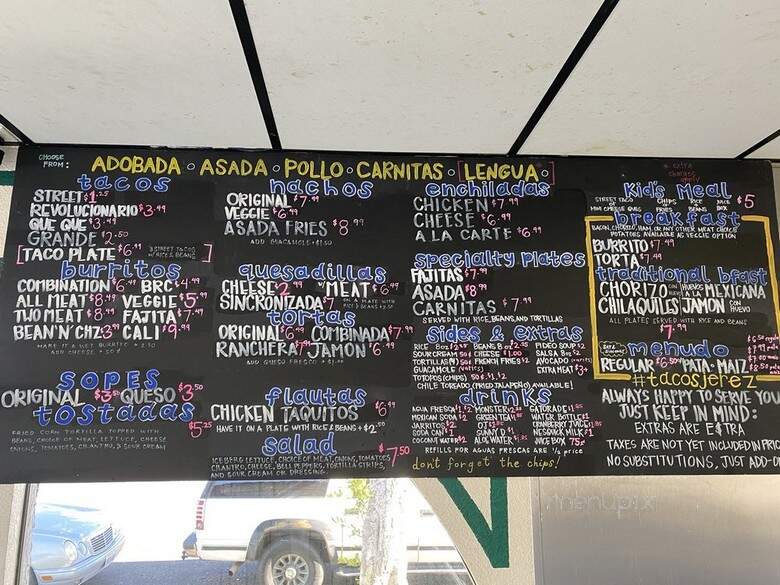 CHOOSE FROM:
ADOBADA · ASADA · POLLO · CARNITAS · [LENGUA]
* extra charges apply
tacos
STREET $1.25
REVOLUCIONARIO $3.49
QUE QUE $3.49
GRANDE $2.50
[TACO PLATE $6.99 3 STREET TACOS W/ RICE & BEANS]
burritos
COMBINATION $6.49 BRC $4.99
ALL MEAT $8.49 VEGGIE $5.99
TWO MEAT $8.99 FAJITA $7.49
BEAN'N'CHZ 3.99 CALI $9.99
MAKE IT A WET BURRITO + 2.50
ADD CHEESE + 50¢
SOPES
ORIGINAL $3.50 QUESO $3.50
tostadas $5.25
FRIED CORN TORTILLA TOPPED WITH
BEANS, CHOICE OF MEAT, LETTUCE, CHEESE
ONIONS, TOMATOES, CILANTRO, & SOUR CREAM
nachos
ORIGINAL $7.99
VEGGIE $6.99
ASADA FRIES $8.99
ADD GUACAMOLE + $1.50
quesadillas
CHEESE 2.99 *MEAT $6.99
SINCRONIZADA $7
tortas
ORIGINAL $6.99 COMBINADA $7.99
RANCHERA $7.99 JAMON $6.49
ADD QUESO FRESCO
flautas
CHICKEN TAQUITOS $6.99
HAVE IT ON A PLATE WITH RICE & BEANS + $2
salad $7.50
ICEBERG LETTUCE, CHOICE OF MEAT, ONIONS, TOMATOES
CILANTRO, CHEESE, BELL PEPPERS, TORTILLA STRIPS,
AND SOUR CREAM OR DRESSING.
enchiladas
CHICKEN $7.99
CHEESE $6.99
A LA CARTE $6.99
specialty plates
FAJITAS $7.99
ASADA $8.99
CARNITAS $7.99
SERVED WITH RICE, BEANS, AND TORTILLAS
sides & extras
RICE 8oz $2.25 BEANS 8oz $2.25 FIDEO SOUP $2
SOUR CREAM 50¢ CHEESE $1.00 SALSA 8oz $2
TORTILLAS(4) 50¢ FRENCH FRIES $2 AVOCADO
GUACAMOLE EXTRA MEAT $3
TOTOPOS (CHIPS) 50¢, $1, $2
CHILE TOREADO (FRIED JALAPEÑO) AVAILABLE!
drinks
AGUA FRESCA MONSTER GATORADE
MEXICAN SODA $2 GREEN TEA WATER BOTTLE
JARRITOS $2 OJ CRANBERRY JUICE
SODA CAN $1 SUNNY D $1 NESQUIK MILK $2
COCONUT WATER $2 ALOE WATER JUICE BOX 75¢
REFILLS FOR AGUAS FRESCAS ARE ½ price
don't forget the chips!
Kid's Meal $5
STREET TACO OR MINI CHEESE QUES CHIPS OR FRIES RICE OR BEANS JUICE BOX
breakfast
BACON, CHORIZO, HAM OR ANY OTHER MEAT CHOICE
POTATOES AVAILABLE AS VEGGIE OPTION
BURRITO $7.49
TORTA $7.49
traditional bfast
CHORIZO CON HUEVO HUEVOS A LA MEXICANA
CHILAQUILES JAMON CON HUEVO
ALL PLATES SERVED WITH RICE AND BEANS
$7.99
menudo
REGULAR $6.50 *PATA · MAIZ
#tacosjerez
ALWAYS HAPPY TO SERVE YOU
JUST KEEP IN MIND:
EXTRAS ARE EXTRA
TAXES ARE NOT YET INCLUDED IN PRIC
NO SUBSTITUTIONS, JUST ADD-O
menupix